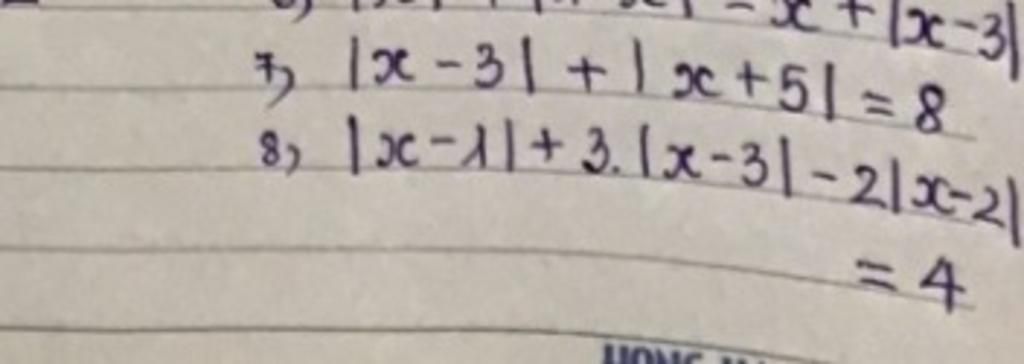 - x + |x-3|
7) |x-3| + |x+5| = 8
8) |x-1| + 3.|x-3| - 2|x-2|
= 4